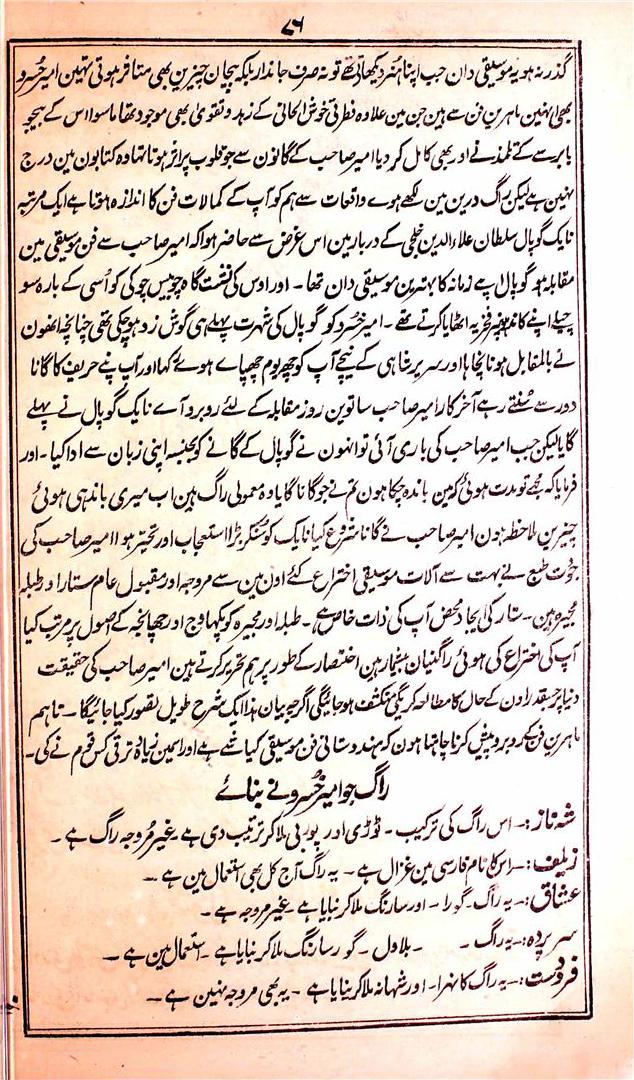 ۷۶
گذرنہ ہو یہ موسیقی دان جب اپنا ہنر دیکھاتے تھے تو نہ صرف جاندار بلکہ بیجان چیزین بھی متاثر ہوتی تہین امیر خسرو
بھی انہین ماہرین فن سے ہین جن مین علاوہ فطرتی خوش الحانی کے زہد و تقویٰ بھی موجود تھا ماسوا اس کے بیجو
باورے کے تلمذ نے اور بھی کامل کر دیا امیر صاحب کے گانون سے جو قلوب پر اثر ہوتا تھا وہ کتابون مین درج
نہین ہے لیکن راگ درپن مین لکھے ہوے واقعات سے ہم کو آپ کے کمالات فن کا اندازہ ہوتا ہے ایک مرتبہ
نایک گوپال سلطان علاءالدین خلجی کے دربار مین اس غرض سے حاضر ہوا کہ امیر صاحب سے فن موسیقی مین
مقابلہ ہو گوپال اپنے زمانہ کا بہترین موسیقی دان تھا۔ اور اوس کی نشست گاہ چوبیس چوکی کو اُسی کے بارہ سو
چیلے اپنے کاندہونپر فخریہ اٹھایا کرتے تھے۔ امیر خسرو کو گوپال کی شہرت پہلے ہی گوش زد ہوچکی تھی چنانچہ انھون
نے بالمقابل ہونا چاہا اور سریر شاہی کے نیچے آپ کو چھ یوم چھپاے ہوے رکہا اور آپ اپنے حریف کا گانا
دور سے سُنتے رہے آخر کار امیر صاحب ساتوین روز مقابلہ کے لئے روبرو آے نایک گوپال نے پہلے
گایا لیکن جب امیر صاحب کی باری آئی تو انہون نے گوپال کے گانے کو بجنسہ اپنی زبان سے ادا کیا۔ اور
فرمایا کہ مجھے تو مدت ہوئی کہ مین باندہ چکا ہون تم نے جو گانا گایا وہ معمولی راگ ہین اب میری باندہی ہوئی
چیزین ملاحظہ ہون امیر صاحب نے گانا شروع کیا نایک کو سُنکر بڑا استعجاب اور تحیر ہوا امیر صاحب کی
جودت طبع نے بہت سے آلات موسیقی اختراع کئے اون مین سے مروجہ اور مقبول عام ستار اور طبلہ
مجیرہ ہین۔ ستار کی ایجاد محض آپ کی ذات خاص ہے۔ طبلہ اور مجیرہ کو پکھاوج اور جھانجہ کے اصول پر مرتب کیا
آپ کی اختراع کی ہوئی راگنیان بیشمار ہین اختصار کے طور پر ہم تحریر کرتے ہین امیر صاحب کی حقیقت
دنیا پر جسقدر اون کے حال کا مطالعہ کریگی منکشف ہو جائیگی اگرچہ بیان ہذا ایک شرح طویل تصور کیا جائیگا۔ تاہم
ماہرین فن کے روبرو پیش کرنا چاہتا ہون کہ ہندوستانی فن موسیقی کیا شے ہے اور اسمین زیادہ ترقی کس قوم نے کی۔
راگ جو امیر خسرو نے بنائے
شہ ناز:۔ اس راگ کی ترکیب۔ ٹوڑی اور پوربی ملا کر ترتیب دی ہے۔ غیر مُروجہ راگ ہے۔
زیلف:۔ اس کا نام فارسی مین غزال ہے۔ یہ راگ آج کل بھی استعمال مین ہے۔
عشاق:۔ یہ راگ۔ گورا۔ اور سارنگ ملا کر بنایا ہے غیر مروجہ ہے۔
سرپردہ:۔ یہ راگ۔ ۔ بلاول۔ گور سارنگ ملا کر بنایا ہے۔ استعمال مین ہے۔
فردست:۔ یہ راگ کانہرا۔ اور شہانہ ملا کر بنایا ہے۔ یہ بھی مروجہ نہین ہے۔